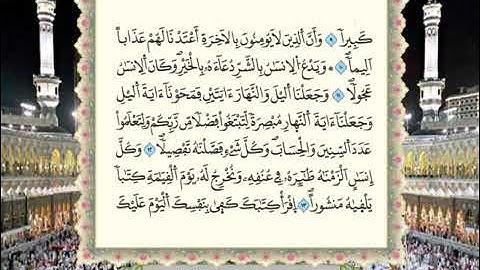 كَبِيراً ٩ وَأَنَّ اَلذِينَ لَا يُومِنُونَ بِالَاخِرَةِ أَعْتَدْنَا لَهُمْ عَذَاباً
اَلِيماً ١٠ وَيَدْعُ اُلِانسَٰنُ بِالشَّرِّ دُعَآءَهُۥ بِالْخَيْرِ وَكَانَ اَلِانسَٰنُ
عَجُولاً ١١ وَجَعَلْنَا اَليْلَ وَالنَّهَارَ ءَايَتَيْنِ فَمَحَوْنَآ ءَايَةَ اَليْلِ
وَجَعَلْنَآ ءَايَةَ اَلنَّهَارِ مُبْصِرَةً لِّتَبْتَغُواْ فَضْلاً مِّن رَّبِّكُمْ وَلِتَعْلَمُواْ
عَدَدَ اَلسِّنِينَ وَالْحِسَابَ وَكُلَّ شَےْءٍ فَصَّلْنَٰهُ تَفْصِيلاً ١٢ وَكُلَّ
إِنسَٰنٍ اَلْزَمْنَٰهُ طَٰٓئِرَهُۥ فِے عُنُقِهِۦ وَنُخْرِجُ لَهُۥ يَوْمَ اَلْقِيَٰمَةِ كِتَٰباً
يَلْقَىٰهُ مَنشُوراً ١٣ اِقْرَأْ كِتَٰبَكَ كَفَىٰ بِنَفْسِكَ اَلْيَوْمَ عَلَيْكَ